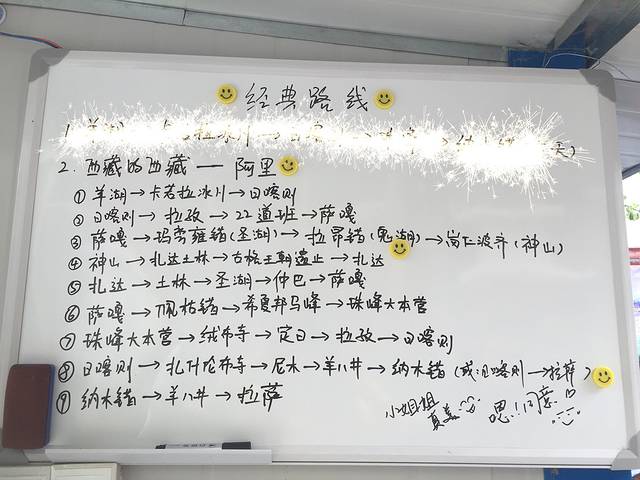 经典路线
2. 西藏的西藏 — 阿里
① 羊湖→卡若拉冰川→日喀则
② 日喀则→拉孜→22道班→萨嘎
③ 萨嘎→玛旁雍错(圣湖)→拉昂错(鬼湖)→岗仁波齐(神山)
④ 神山→扎达土林→古格王朝遗止→扎达
⑤ 扎达→土林→圣湖→仲巴→萨嘎
⑥ 萨嘎→佩枯错→希夏邦马峰→珠峰大本营
⑦ 珠峰大本营→绒布寺→定日→拉孜→日喀则
⑧ 日喀则→扎什伦布寺→尼木→羊八井→纳木错(或:日喀则→拉萨)
⑨ 纳木错→羊八井→拉萨
小姐姐 嗯!同意
真美